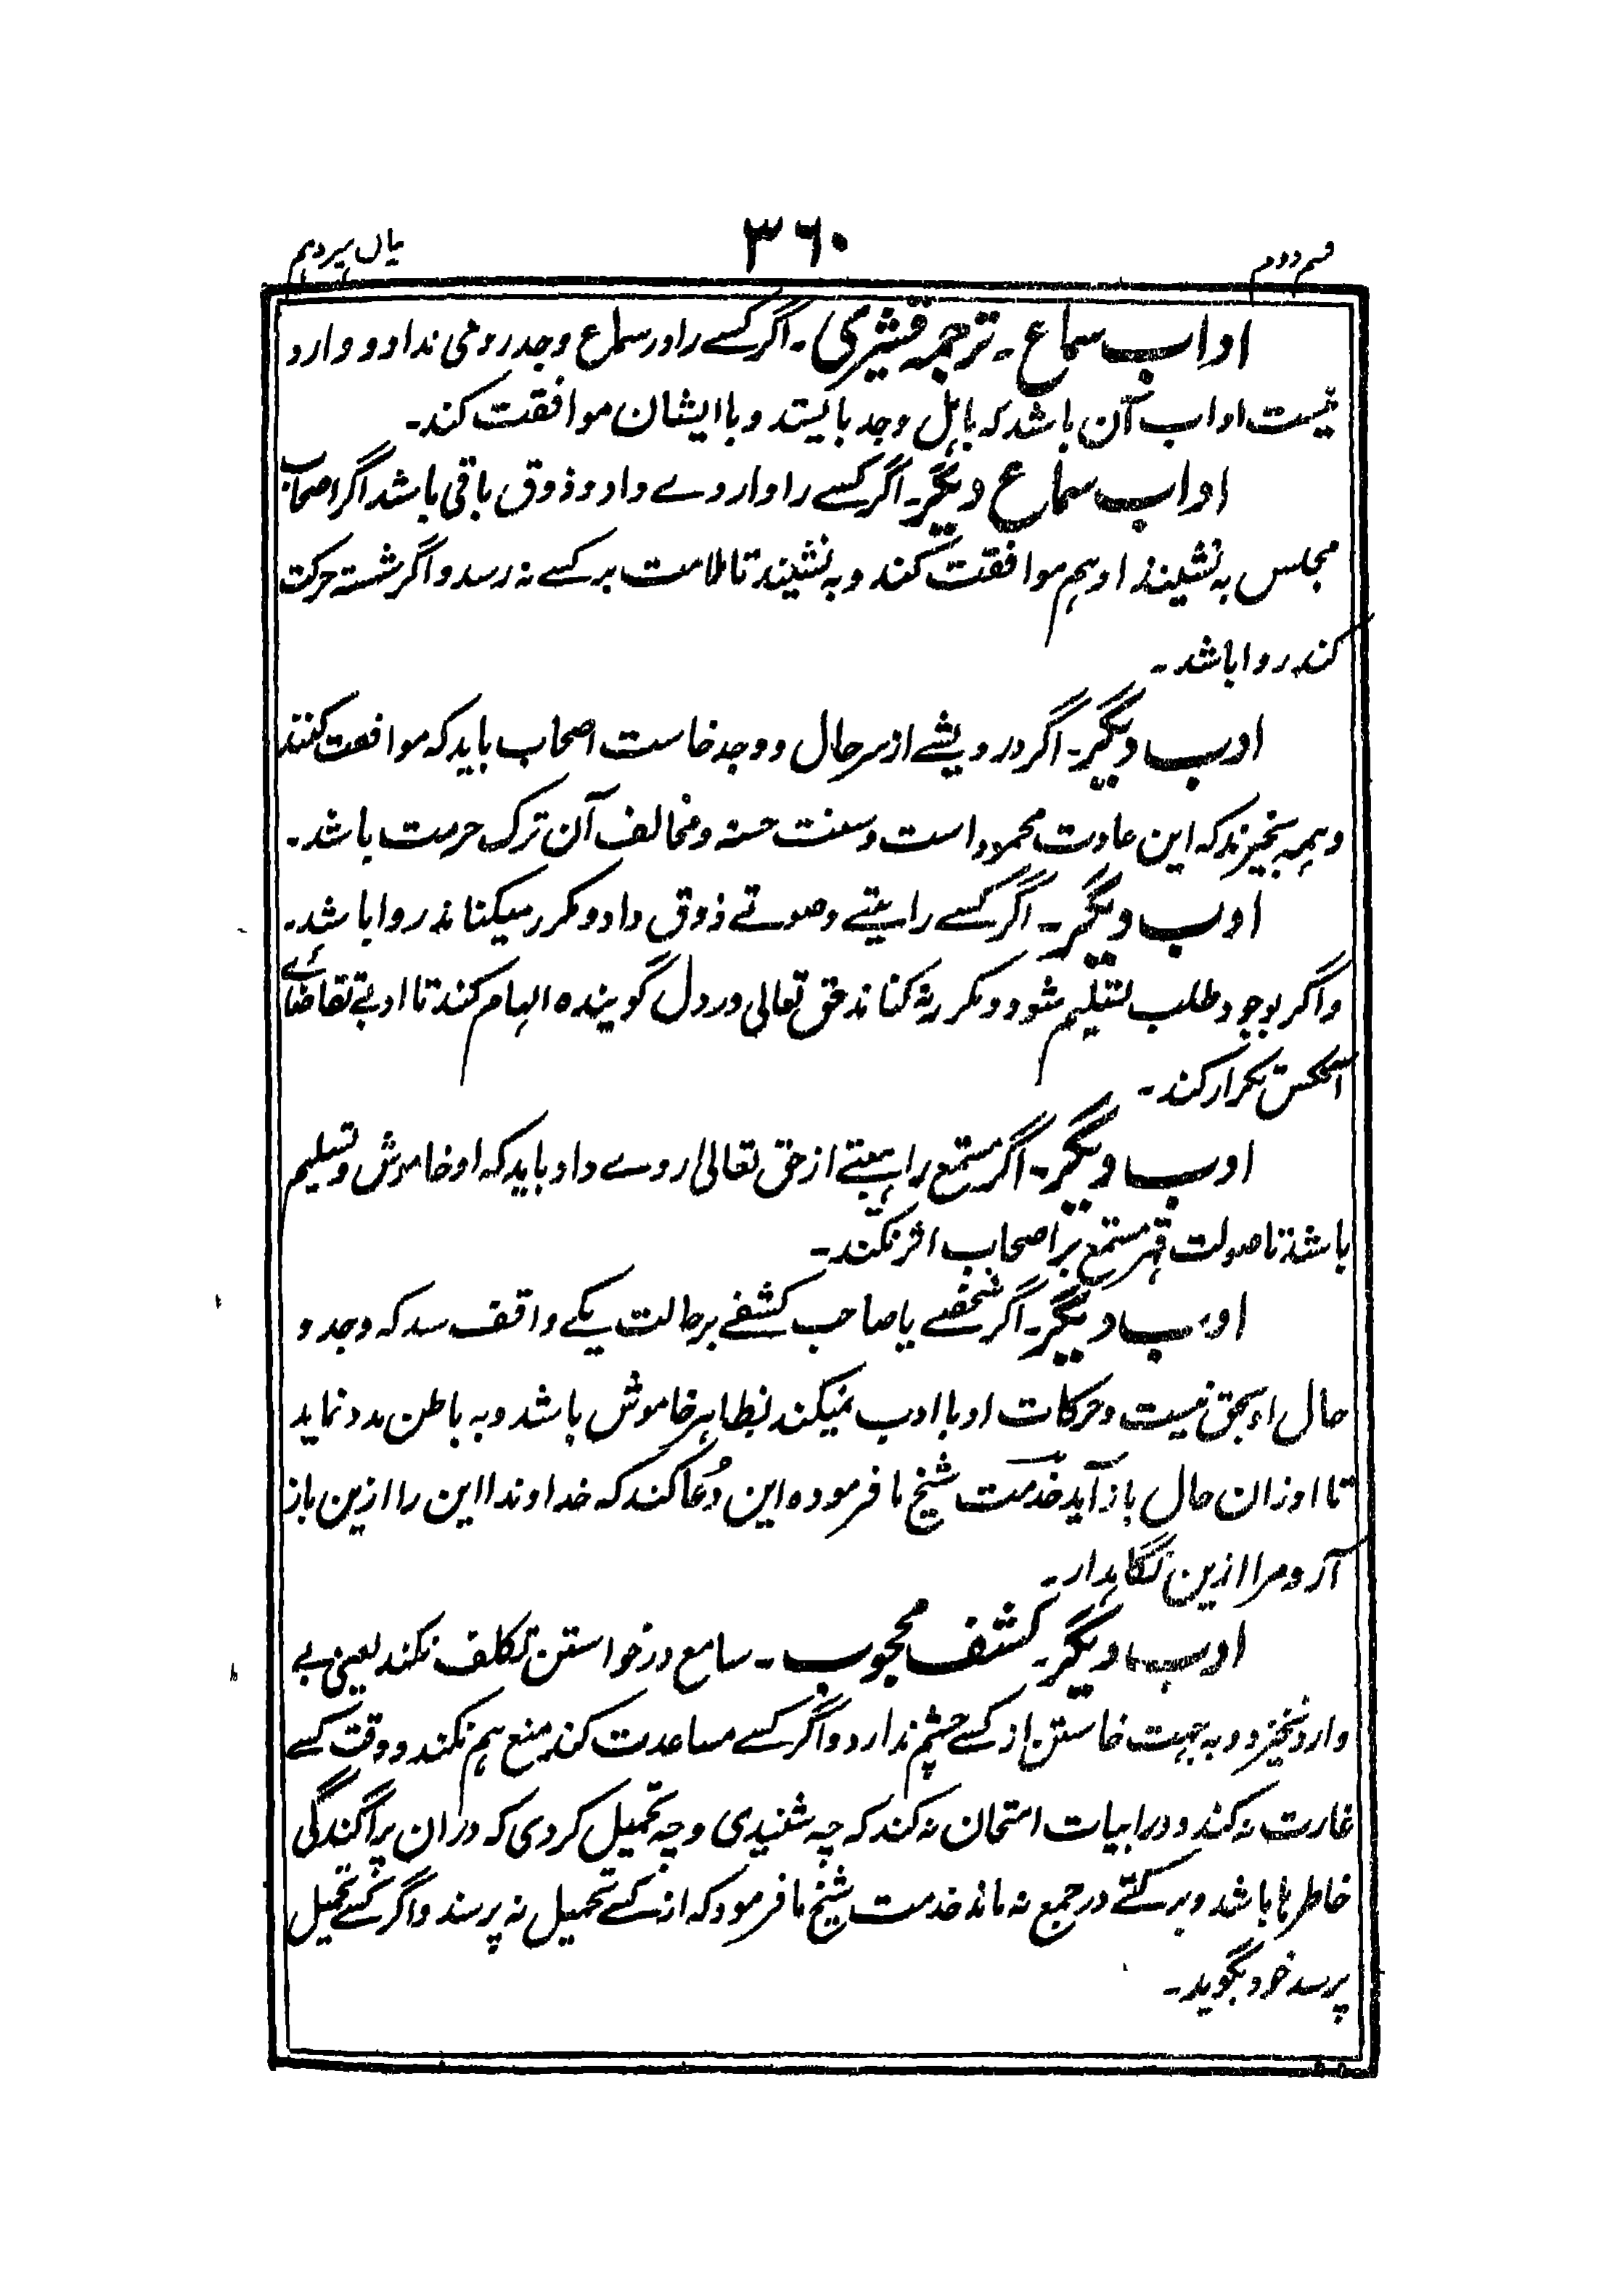 قسم دوم ۳۶۰ بیان سیزدہم
اداب سماع ۔ ترجمہ قشیری ۔ اگر کسے را در سماع وجد روی نداد و وارد
نیست اداب آن باشد کہ باہل وجد بایستد و با ایشان موافقت کند۔
اداب سماع دیگر۔ اگر کسے را وارد روے داد و ذوق باقی باشد اگر اصحاب
مجلس بہ نشینند او ہم موافقت کند و بہ نشیند تا ملامت بر کسے نہ رسد و اگر نشستہ حرکت
کند روا باشد۔
ادب دیگر۔ اگر درویشے از سر حال و وجد خاست اصحاب باید کہ موافقت کنند
و ہمہ بخیزند کہ این عادت محمود است و سنت حسنہ و مخالف آن ترک حرمت باشد۔
ادب دیگر۔ اگر کسے را بیتے و صوتے ذوق داد و مکرر میکناند روا باشد۔
و اگر بوجود طلب تسلیم شود و مکرر نہ کناند حق تعالی در دل گویندہ الہام کند تا او بے تقاضاے
آنکس تکرار کند۔
ادب دیگر۔ اگر مستمع را ہیبتے از حق تعالیٰ روے داد باید کہ او خاموش و تسلیم
باشد تا صولت قہر مستمع بر اصحاب اثر نکند۔
ادب دیگر۔ اگر شخصے یا صاحب کشفے بر حالت یکے واقف سد کہ وجد و
حال او بحق نیست و حرکات او با ادب نمیکند بظاہر خاموش باشد و بہ باطن مدد نماید
تا او ازان حال باز آید خدمت شیخ ما فرمودہ این دُعا کند کہ خداوندا این را ازین باز
آر و مرا ازین نگاہدار۔
ادب دیگر۔ کشف محجوب ۔ سامع در خواستن تکلف نکند یعنی بے
وارد نخیزد و بہ جہت خاستن از کسے چشم ندارد و اگر کسے مساعدت کند منع ہم نکند و وقت کسے
غارت نہ کند و در ابیات امتحان نہ کند کہ چہ شنیدی و چہ تحمیل کردی کہ دران پراگندگی
خاطرہا باشد و برکتے در جمع نہ ماند خدمت شیخ ما فرمود کہ از کسے تحمیل نہ پرسند و اگر کسے تحمیل
پرسد خود بگوید۔